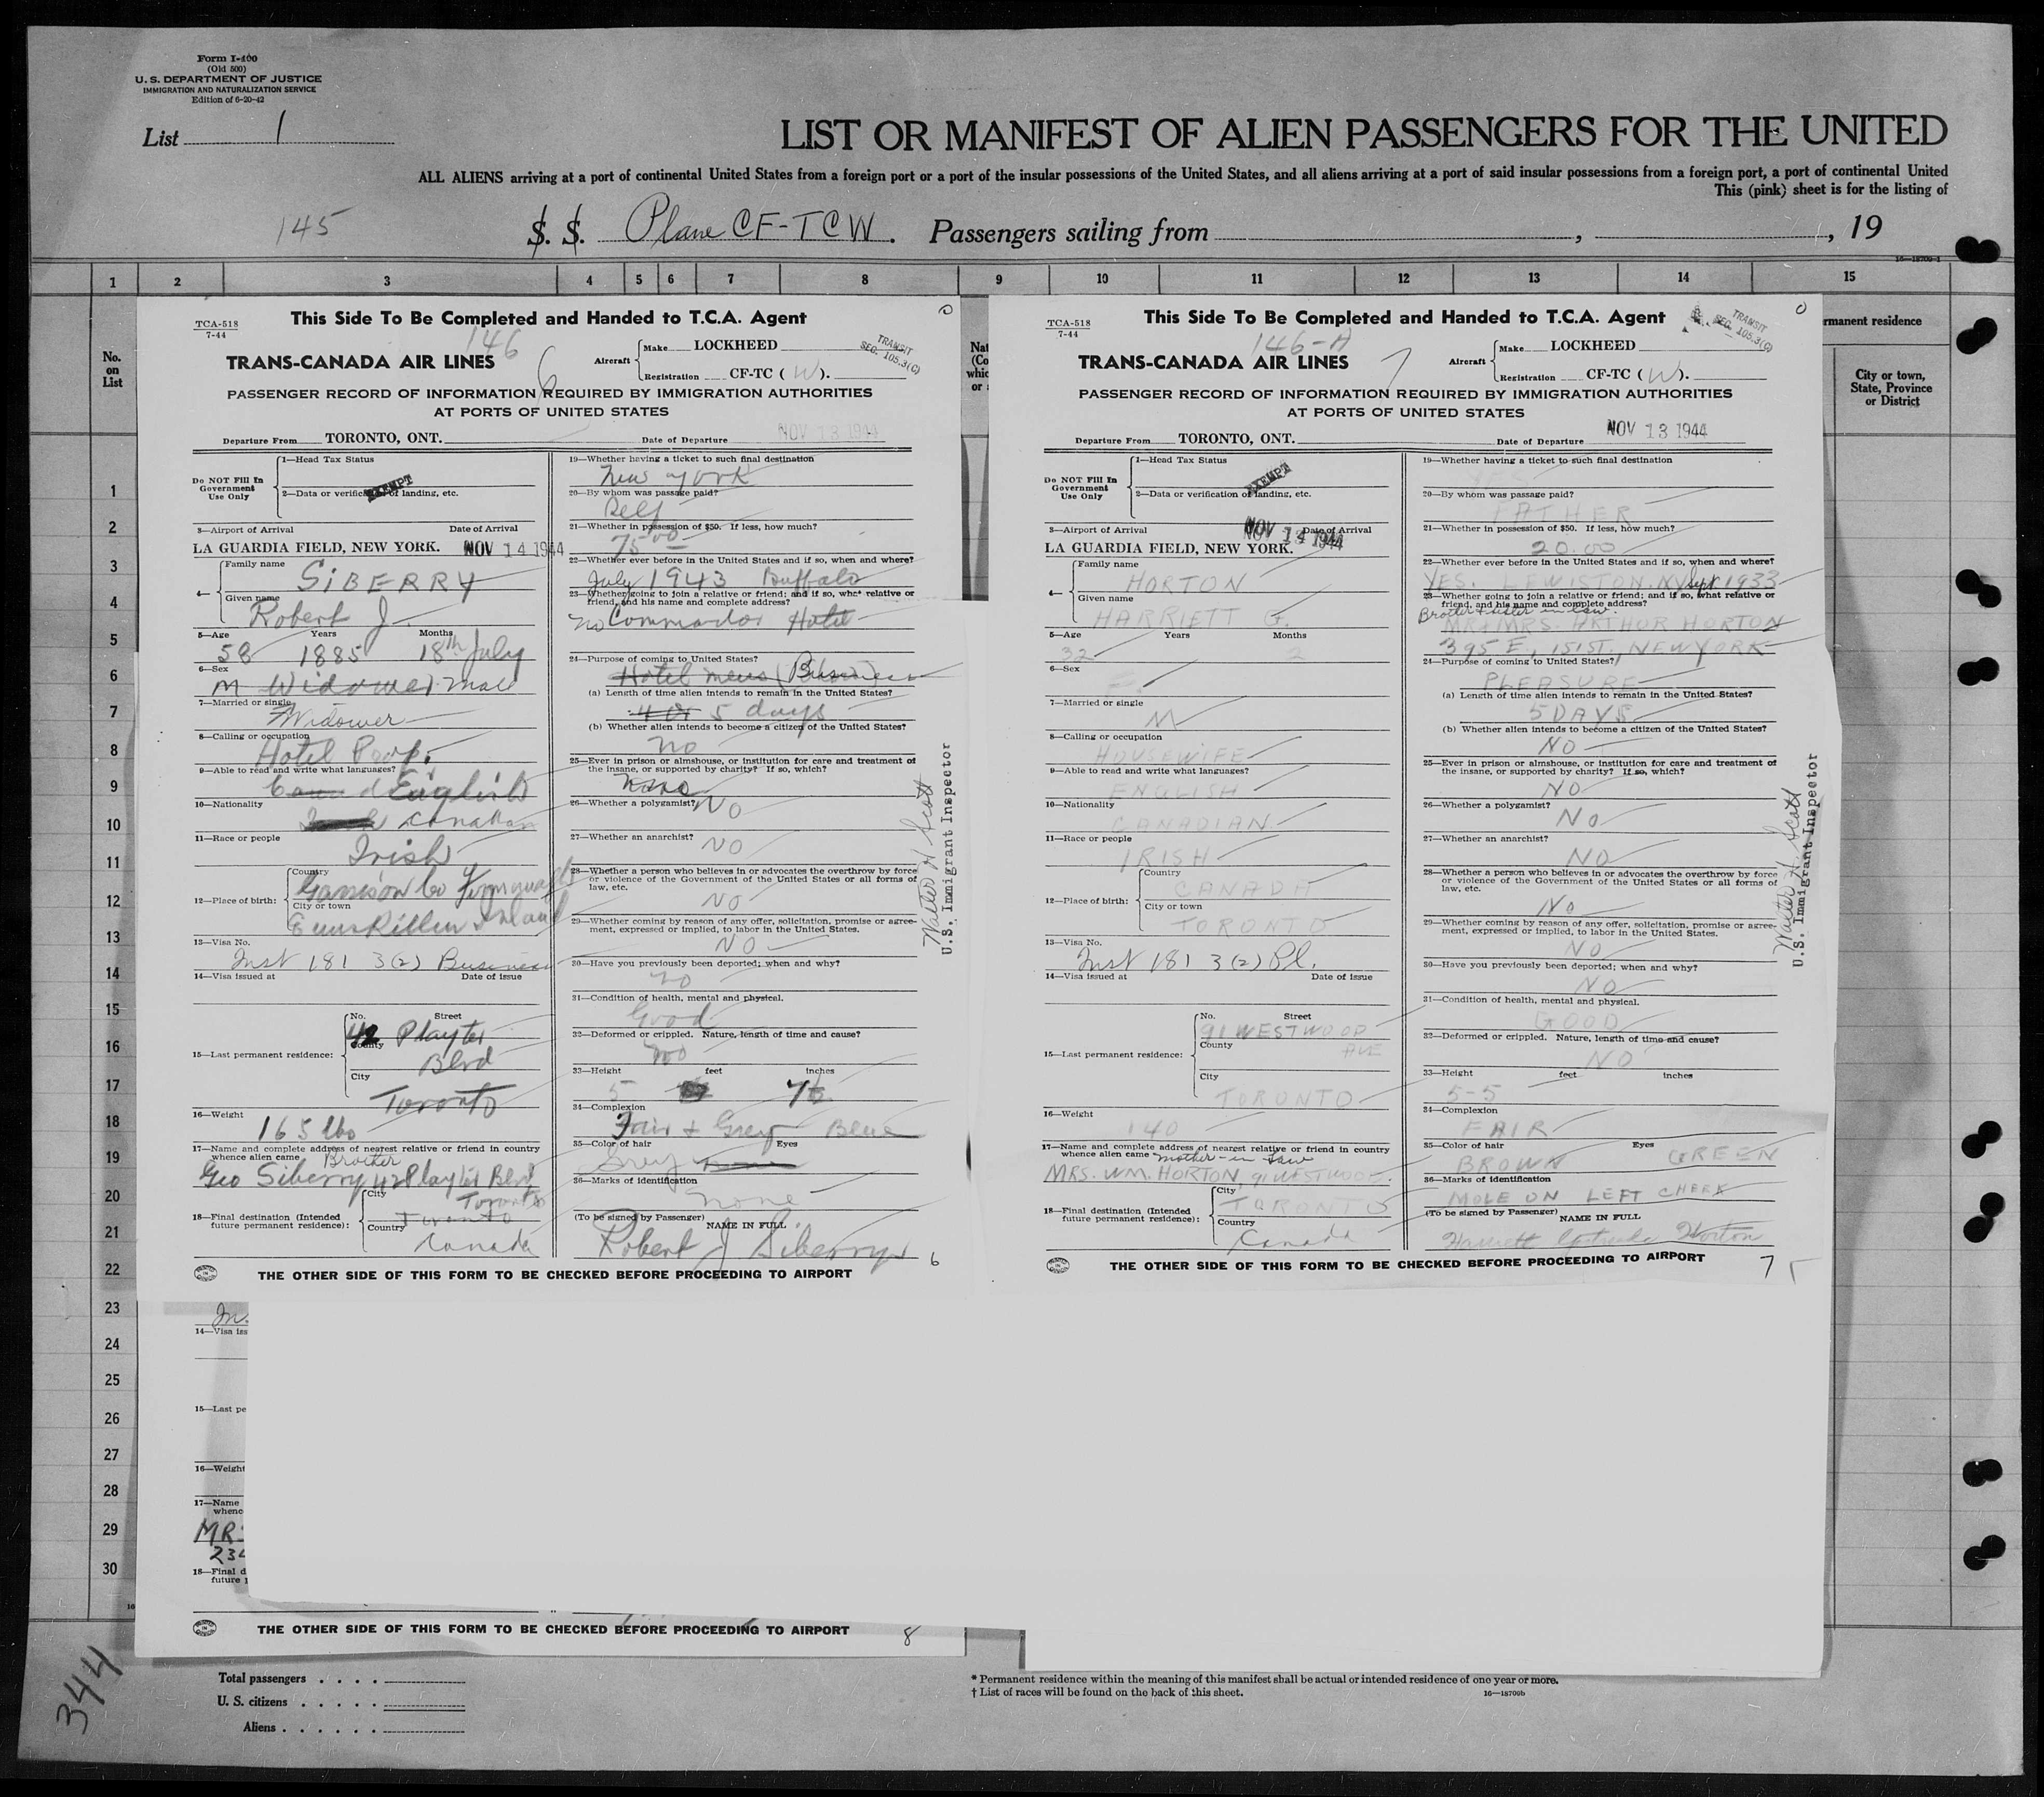 Form I-400
(Old 500)
U. S. DEPARTMENT OF JUSTICE
IMMIGRATION AND NATURALIZATION SERVICE
Edition of 6-20-42
List 1
LIST OR MANIFEST OF ALIEN PASSENGERS FOR THE UNITED
ALL ALIENS arriving at a port of continental United States from a foreign port or a port of the insular possessions of the United States, and all aliens arriving at a port of said insular possessions from a foreign port, a port of continental United
This (pink) sheet is for the listing of
145
S. S. Plane CF-TCW. Passengers sailing from , , 19
1 2 3 4 5 6 7 8 9 10 11 12 13 14 15
No.
on
List
1
2
3
4
5
6
7
8
9
10
11
12
13
14
15
16
17
18
19
20
21
22
23
24
25
26
27
28
29
30
TCA-518
7-44
This Side To Be Completed and Handed to T.C.A. Agent
146
6
TRANS-CANADA AIR LINES
Aircraft
Make LOCKHEED
Registration CF-TC ( W ).
TRANSIT
SEC. 105.3(C)
PASSENGER RECORD OF INFORMATION REQUIRED BY IMMIGRATION AUTHORITIES
AT PORTS OF UNITED STATES
Departure From TORONTO, ONT. Date of Departure NOV 13 1944
Do NOT Fill In
Government
Use Only
1—Head Tax Status
EXEMPT
2—Data or verification of landing, etc.
3—Airport of Arrival Date of Arrival
LA GUARDIA FIELD, NEW YORK. NOV 14 1944
4—
Family name
SIBERRY
Given name
Robert J.
5—Age Years Months
58 1885 18th July
6—Sex
M Widower male
7—Married or single
Widower
8—Calling or occupation
Hotel Prop.
9—Able to read and write what languages?
English
10—Nationality
Canadian
11—Race or people
Irish
12—Place of birth:
Country
Garrison Co
City or town
13—Visa No.
Inst 181 3(2) Business
14—Visa issued at Date of issue
15—Last permanent residence:
No. Street
42 Playter
County
Blvd
City
Toronto
16—Weight
165 lbs
17—Name and complete address of nearest relative or friend in country
whence alien came
Brother
Geo Siberry 42 Playter Blvd
Toronto
18—Final destination (Intended
future permanent residence):
City
Toronto
Country
Canada
19—Whether having a ticket to such final destination
New York
20—By whom was passage paid?
Self
21—Whether in possession of $50. If less, how much?
75.00
22—Whether ever before in the United States and if so, when and where?
July 1943 Buffalo
23—Whether going to join a relative or friend; and if so, what relative or
friend, and his name and complete address?
no Commador Hotel
24—Purpose of coming to United States?
Hotel mens (Business)
(a) Length of time alien intends to remain in the United States?
4 or 5 days
(b) Whether alien intends to become a citizen of the United States?
No
25—Ever in prison or almshouse, or institution for care and treatment of
the insane, or supported by charity? If so, which?
26—Whether a polygamist?
NO
27—Whether an anarchist?
NO
28—Whether a person who believes in or advocates the overthrow by force
or violence of the Government of the United States or all forms of
law, etc.
NO
29—Whether coming by reason of any offer, solicitation, promise or agree-
ment, expressed or implied, to labor in the United States.
NO
30—Have you previously been deported; when and why?
no
31—Condition of health, mental and physical.
Good
32—Deformed or crippled. Nature, length of time and cause?
no
33—Height feet inches
5
34—Complexion
Fair & Grey Blue
35—Color of hair Eyes
Grey
36—Marks of identification
none
(To be signed by Passenger) NAME IN FULL
Robert J Siberry
6
Walter H Scott
U.S. Immigrant Inspector
THE OTHER SIDE OF THIS FORM TO BE CHECKED BEFORE PROCEEDING TO AIRPORT
TCA-518
7-44
This Side To Be Completed and Handed to T.C.A. Agent
146-A
7
TRANS-CANADA AIR LINES
Aircraft
Make LOCKHEED
Registration CF-TC ( W ).
TRANSIT
SEC. 105.3(C)
PASSENGER RECORD OF INFORMATION REQUIRED BY IMMIGRATION AUTHORITIES
AT PORTS OF UNITED STATES
Departure From TORONTO, ONT. Date of Departure NOV 13 1944
Do NOT Fill In
Government
Use Only
1—Head Tax Status
EXEMPT
2—Data or verification of landing, etc.
3—Airport of Arrival Date of Arrival
LA GUARDIA FIELD, NEW YORK. NOV 14 1944
4—
Family name
HORTON
Given name
HARRIETT G.
5—Age Years Months
32 2
6—Sex
F.
7—Married or single
M
8—Calling or occupation
HOUSEWIFE
9—Able to read and write what languages?
ENGLISH
10—Nationality
CANADIAN
11—Race or people
IRISH
12—Place of birth:
Country
CANADA
City or town
TORONTO
13—Visa No.
Inst 181 3(2) Pl.
14—Visa issued at Date of issue
15—Last permanent residence:
No. Street
91 WESTWOOD
County
AVE
City
TORONTO
16—Weight
140
17—Name and complete address of nearest relative or friend in country
whence alien came mother-in law
MRS. WM. HORTON, 91 WESTWOOD.
18—Final destination (Intended
future permanent residence):
City
TORONTO
Country
Canada
19—Whether having a ticket to such final destination
20—By whom was passage paid?
FATHER
21—Whether in possession of $50. If less, how much?
20.00
22—Whether ever before in the United States and if so, when and where?
YES. LEWISTON. NY Sept 1933
23—Whether going to join a relative or friend; and if so, what relative or
friend, and his name and complete address?
Brother & sister in law.
MR & MRS. ARTHUR HORTON
395 E, 151 ST., NEW YORK
24—Purpose of coming to United States?
PLEASURE
(a) Length of time alien intends to remain in the United States?
5 DAYS
(b) Whether alien intends to become a citizen of the United States?
NO
25—Ever in prison or almshouse, or institution for care and treatment of
the insane, or supported by charity? If so, which?
NO
26—Whether a polygamist?
NO
27—Whether an anarchist?
NO
28—Whether a person who believes in or advocates the overthrow by force
or violence of the Government of the United States or all forms of
law, etc.
NO
29—Whether coming by reason of any offer, solicitation, promise or agree-
ment, expressed or implied, to labor in the United States.
NO
30—Have you previously been deported; when and why?
NO
31—Condition of health, mental and physical.
GOOD
32—Deformed or crippled. Nature, length of time and cause?
NO
33—Height feet inches
5-5
34—Complexion
FAIR
35—Color of hair Eyes
BROWN GREEN
36—Marks of identification
MOLE ON LEFT CHEEK
(To be signed by Passenger) NAME IN FULL
Harriett Gertrude Horton
7
Walter H. Scott
U.S. Immigrant Inspector
THE OTHER SIDE OF THIS FORM TO BE CHECKED BEFORE PROCEEDING TO AIRPORT
rmanent residence
City or town,
State, Province
or District
14—Visa iss
15—Last pe
16—Weight
17—Name
whenc
MRS
234
18—Final d
future
THE OTHER SIDE OF THIS FORM TO BE CHECKED BEFORE PROCEEDING TO AIRPORT
8
344
Total passengers
U. S. citizens
Aliens
* Permanent residence within the meaning of this manifest shall be actual or intended residence of one year or more.
† List of races will be found on the back of this sheet.
16—18709b